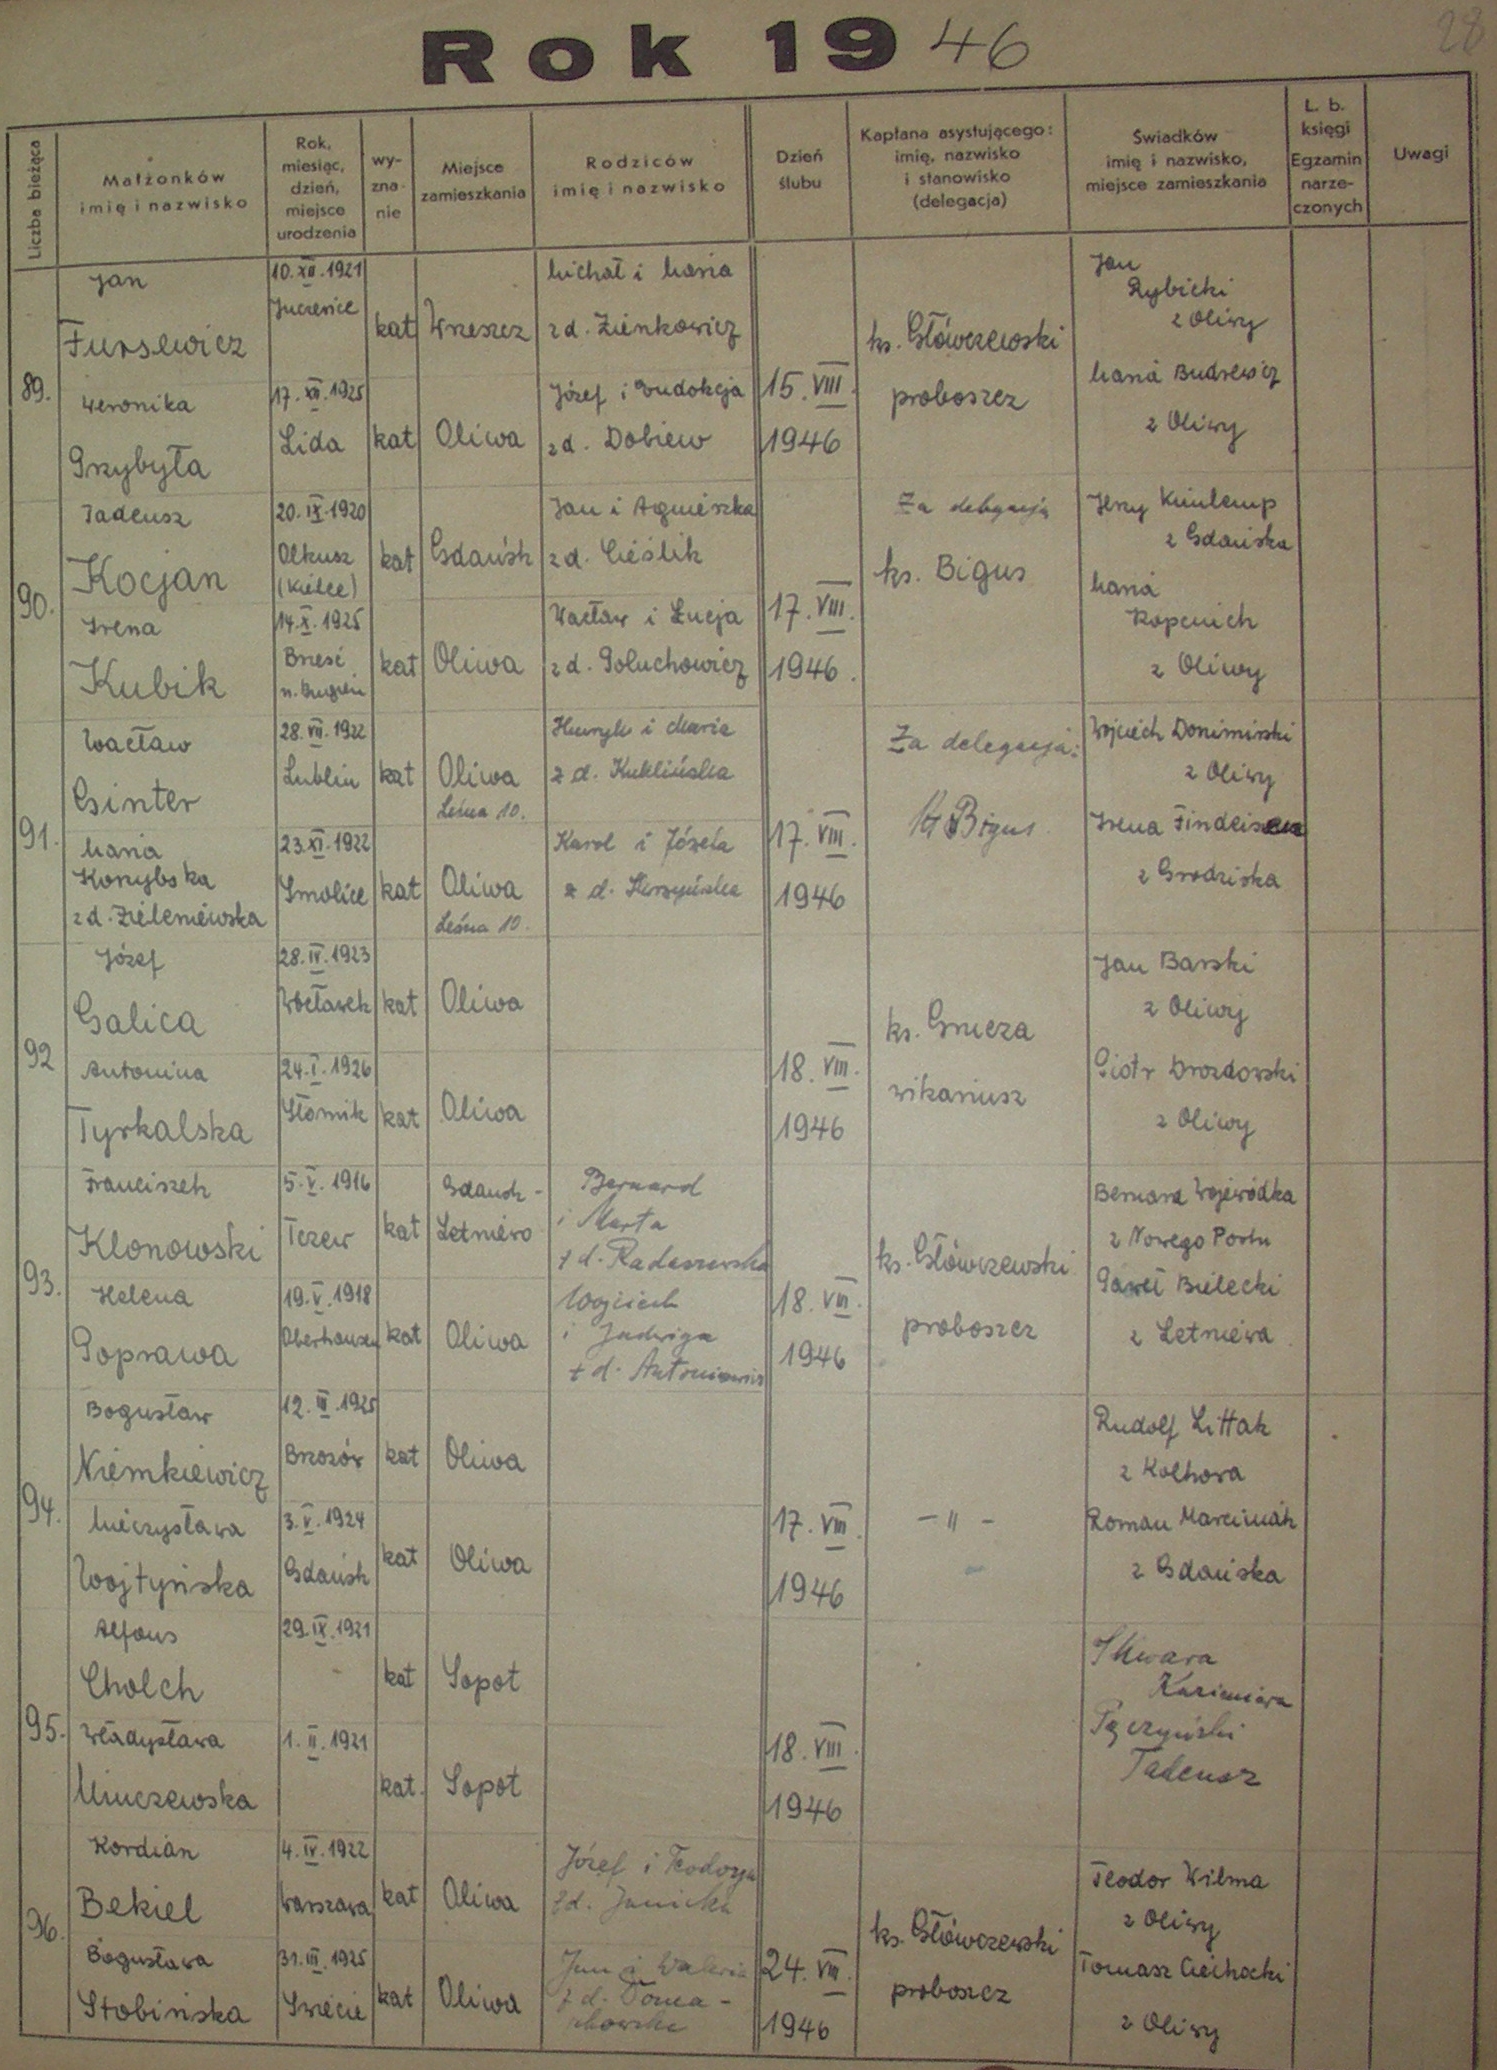 28
Rok 1946
Liczba bieżąca
Małżonków
imię i nazwisko
Rok,
miesiąc,
dzień,
miejsce
urodzenia
wy-
zna-
nie
Miejsce
zamieszkania
Rodziców
imię i nazwisko
Dzień
ślubu
Kapłana asystującego:
imię, nazwisko
i stanowisko
(delegacja)
Świadków
imię i nazwisko,
miejsce zamieszkania
L. b.
księgi
Egzamin
narze-
czonych
Uwagi
89.
Jan
Fursewicz
10.XII.1921
kat
Wrzeszcz
Michał i Maria
z d. Zienkowicz
Weronika
Przybyła
17.XII.1925
Lida
kat
Oliwa
Józef i Eudokcja
z d. Dobiew
15.VIII.
1946
ks. Główczewski
proboszcz
Jan
Rybicki
z Oliwy
Maria Budrewicz
z Oliwy
90.
Tadeusz
Kocjan
20.IX.1920
Olkusz
(Kielce)
kat
Gdańsk
Jan i Agnieszka
z d. Cieślik
Irena
Kubik
14.X.1925
Brześć
n. Bugiem
kat
Oliwa
Wacław i Łucja
z d. Goluchowicz
17.VIII.
1946.
Za delegacją
ks. Bigus
Jerzy
z Gdańska
Maria
z Oliwy
91.
Wacław
Ginter
28.VII.1922
Lublin
kat
Oliwa
Leśna 10.
Henryk i Maria
z d. Kuklińska
Maria
Korzybska
z d. Zieleniewska
23.XI.1922
Smolice
kat
Oliwa
Leśna 10.
Karol i Józefa
z d.
17.VIII.
1946
Za delegacją:
Bigus
Wojciech Donimirski
z Oliwy
Irena
z Grodziska
92
Józef
Galica
28.IV.1923
Włocławek
kat
Oliwa
Antonina
Tyrkalska
24.I.1926
Słonik
kat
Oliwa
18.VIII.
1946
ks. Gnieza
wikariusz
Jan Barski
z Oliwy
Piotr Drozdowski
z Oliwy
93.
Franciszek
Klonowski
5.V.1916
Tczew
kat
Gdańsk-
Letniewo
Bernard
i Marta
z d. Radaszewska
Helena
Poprawa
19.V.1918
Oberhausen
kat
Oliwa
Wojciech
i Jadwiga
z d. Antoniewicz
18.VIII.
1946
ks. Główczewski
proboszcz
Bernard Wojewódka
z Nowego Portu
Paweł Bielecki
z Letniewa
94.
Bogusław
Niemkiewicz
12.III.1925
Brzozów
kat
Oliwa
Mieczysława
Wojtyńska
3.V.1924
Gdańsk
kat
Oliwa
17.VIII.
1946
- " -
Rudolf Littak
z Kolhowa
Roman Marciniak
z Gdańska
95.
Alfons
Cholch
29.IX.1921
kat
Sopot
Władysława
Umczewska
1.II.1921
kat.
Sopot
18.VIII.
1946
Skwara
Kazimiera
Pączyński
Tadeusz
96.
Kordian
Bekiel
4.IV.1922
Warszawa
kat
Oliwa
Józef i Teodozja
z d. Janicka
Bogusława
Stobińska
31.III.1925
Świecie
kat
Oliwa
Jan i Waleria
z d. Toma-
24.VIII.
1946
ks. Główczewski
proboszcz
Teodor Wilma
z Oliwy
Tomasz Ciechocki
z Oliwy